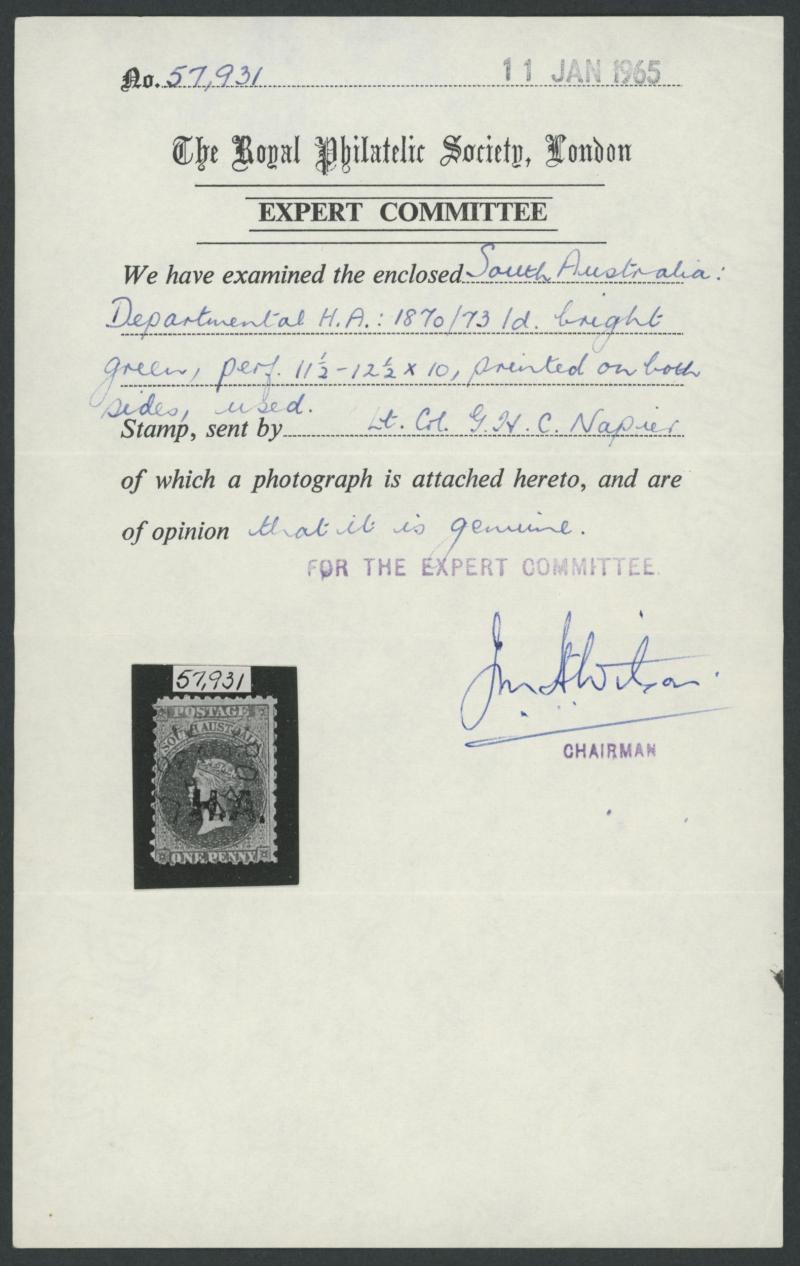 No. 57,931 11 JAN 1965
The Royal Philatelic Society, London
EXPERT COMMITTEE
We have examined the enclosed South Australia:
Departmental H.A.: 1870/73 1d. bright
green, perf. 11½-12½ x 10, printed on both
sides, used.
Stamp, sent by Lt. Col. G.H.C. Napier
of which a photograph is attached hereto, and are
of opinion that it is genuine.
FOR THE EXPERT COMMITTEE.
CHAIRMAN
57,931
POSTAGE
SOUTH AUSTRALIA
H.A.
ONE PENNY